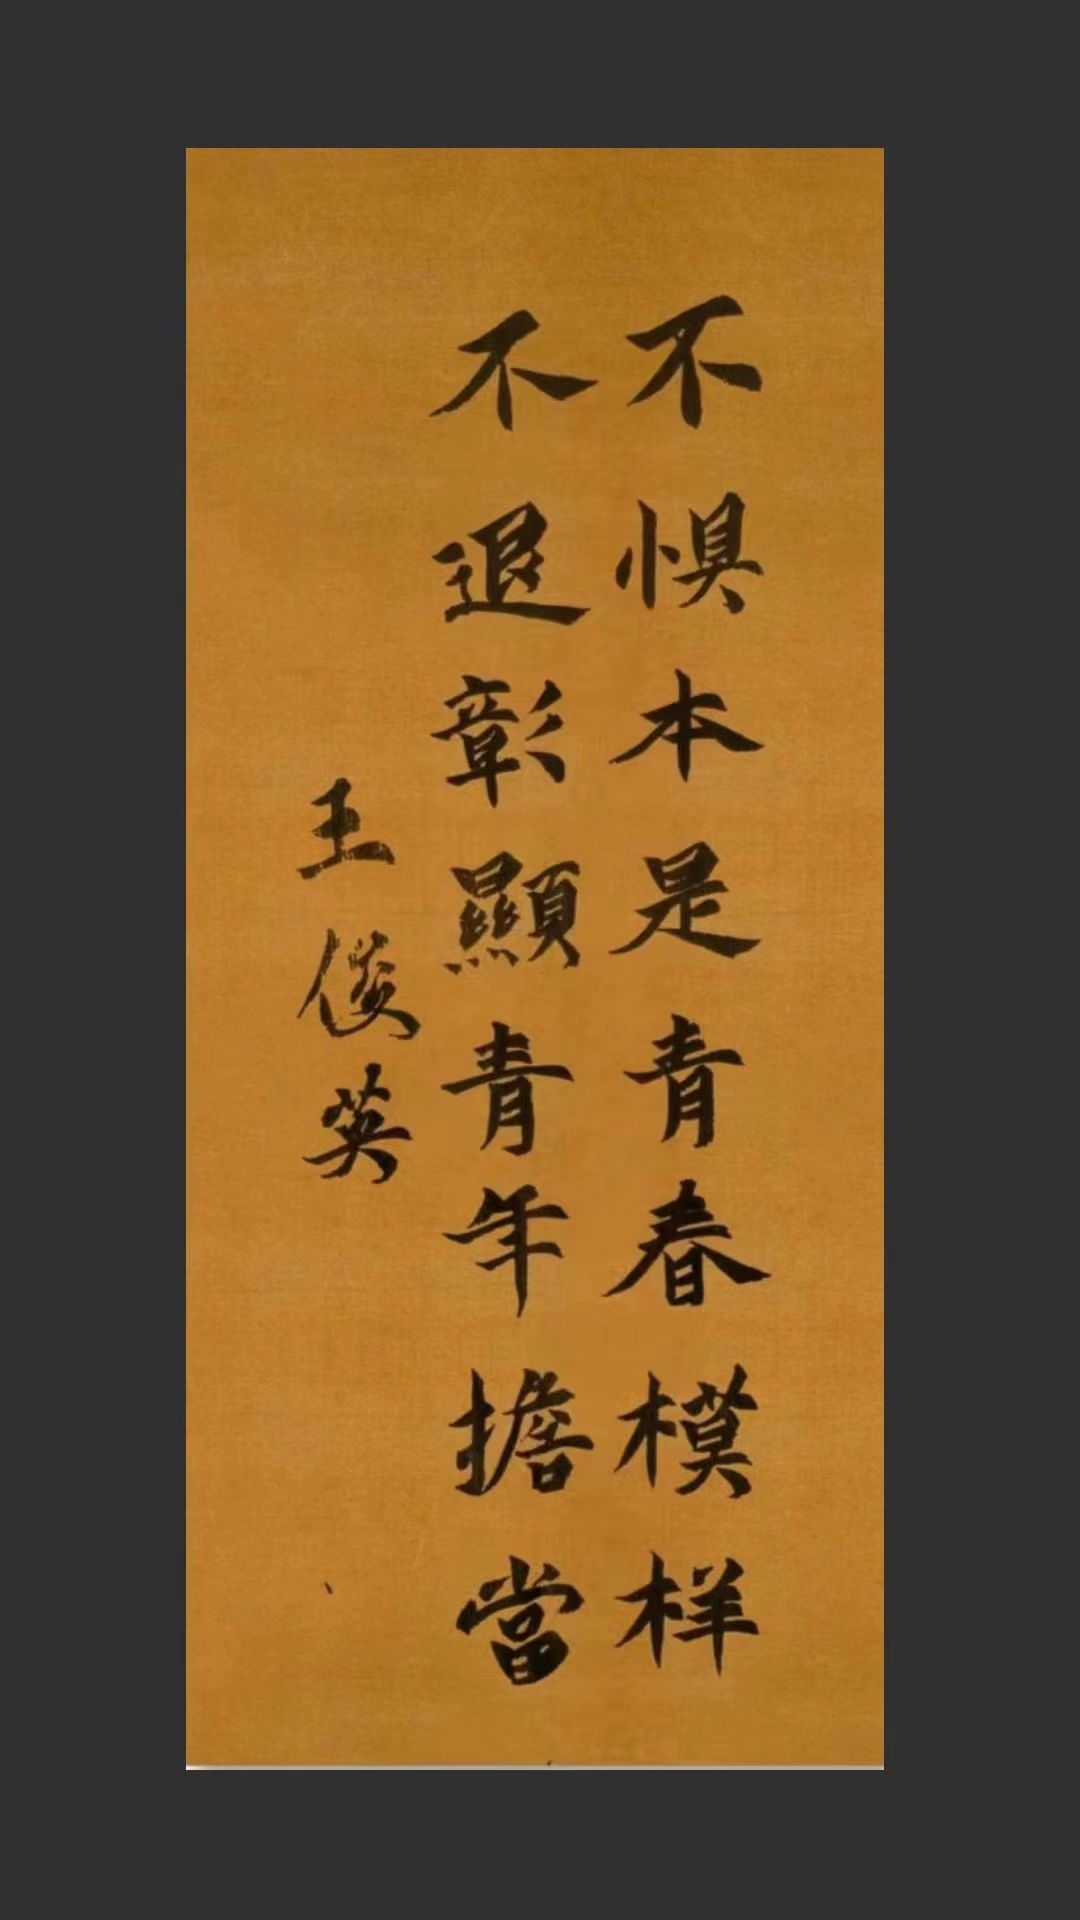 不惧本是青春模样
不退彰顯青年擔當
王俊英